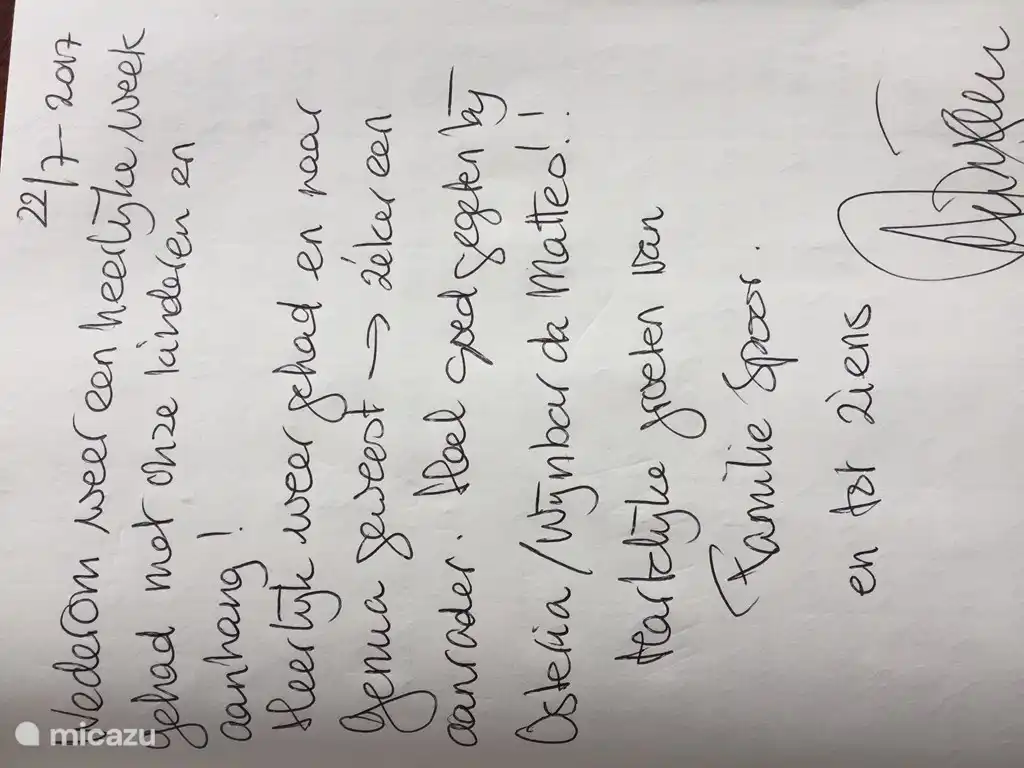 22/7-2017
Wederom weer een heerlijke week
gehad met onze kinderen en
aanhang!
Heerlijk weer gehad en naar
Genua geweest → zeker een
aanrader. Heel goed gegeten bij
Osteria / Wijnbar da Matteo!!
Hartelijke groeten van
Familie Spoor.
en tot ziens
micazu